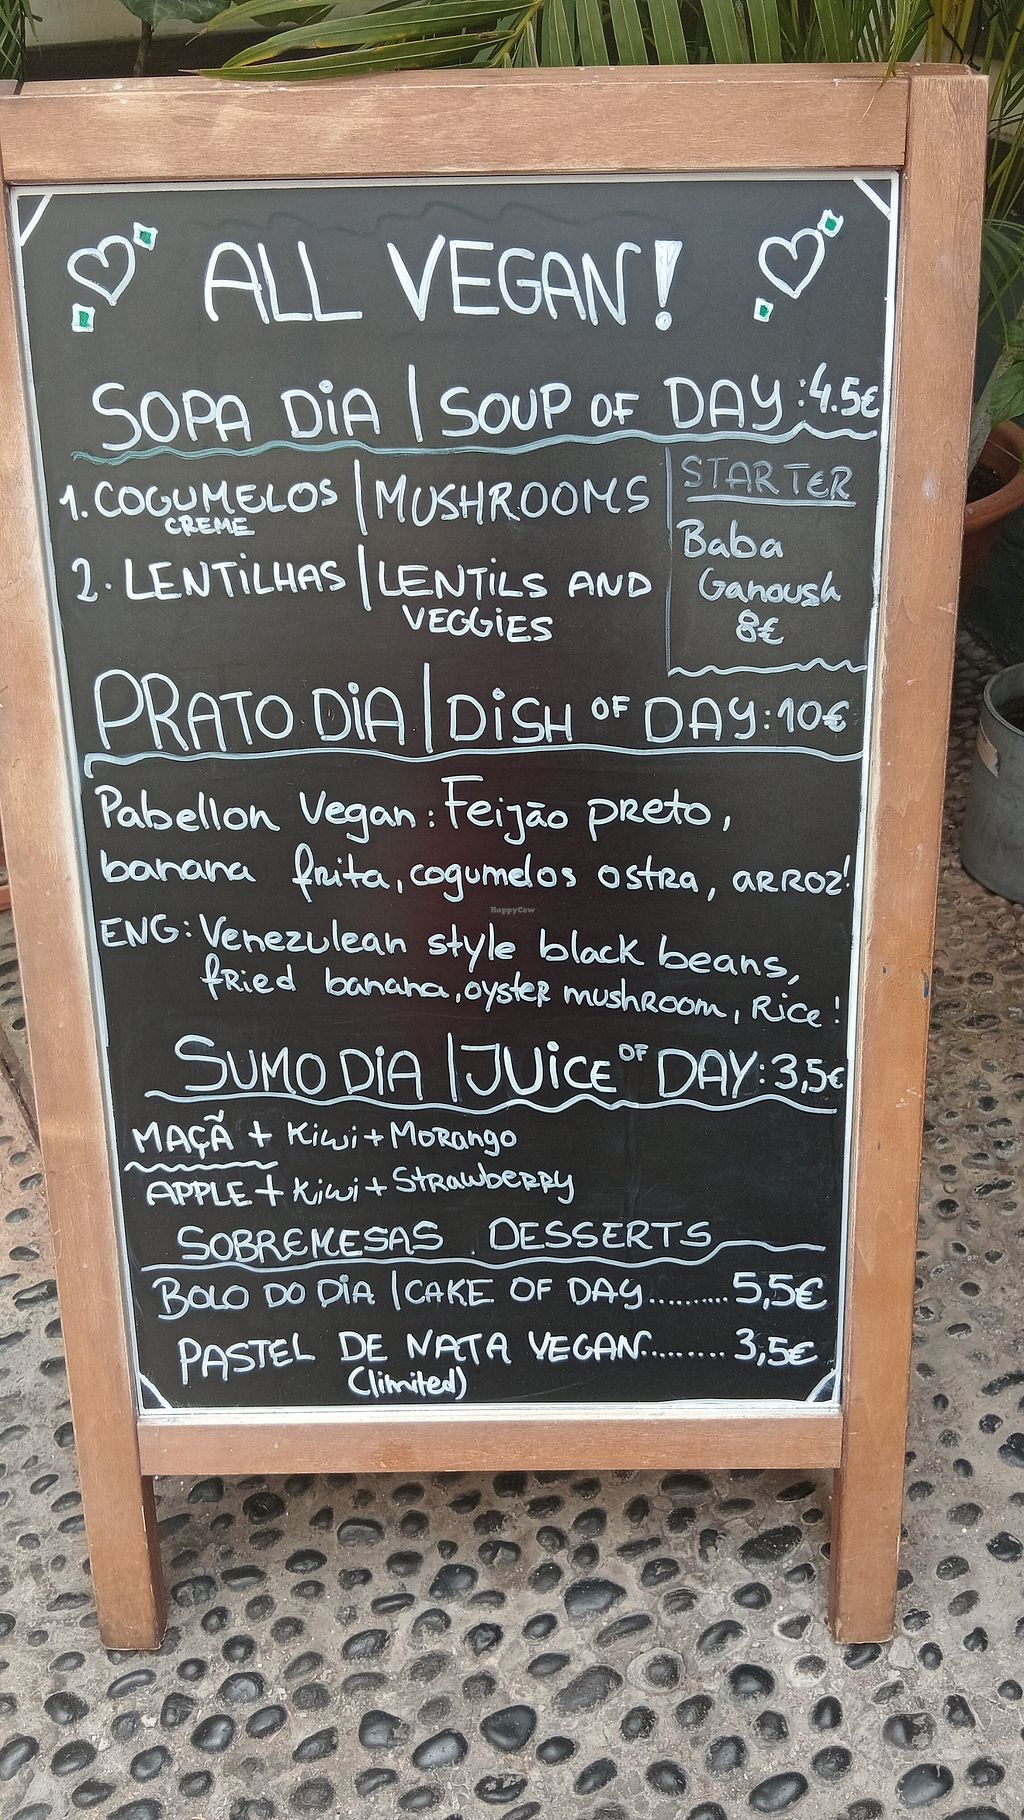 ALL VEGAN!
SOPA DiA | SOUP OF DAY: 4.5€
1. COGUMELOS | MUSHROOMS
CREME
2. LENTiLHAS | LENTiLS AND
VEGGiES
STARTER
Baba
Ganoush
8€
PRATO DiA | DiSH OF DAY: 10€
Pabellon Vegan: Feijão preto,
banana frita, cogumelos ostra, ARROZ!
ENG: Venezulean style black beans,
fRied banana, oysteR mushRoom, Rice!
SUMO DiA | JUiCE OF DAY: 3,5€
MAÇÃ + Kiwi + MoRango
APPLE + Kiwi + StRawbeRRy
SOBREMESAS DESSERTS
BOLO DO DiA | CAKE OF DAY.......... 5,5€
PASTEL DE NATA VEGAN......... 3,5€
(limited)
HappyCow